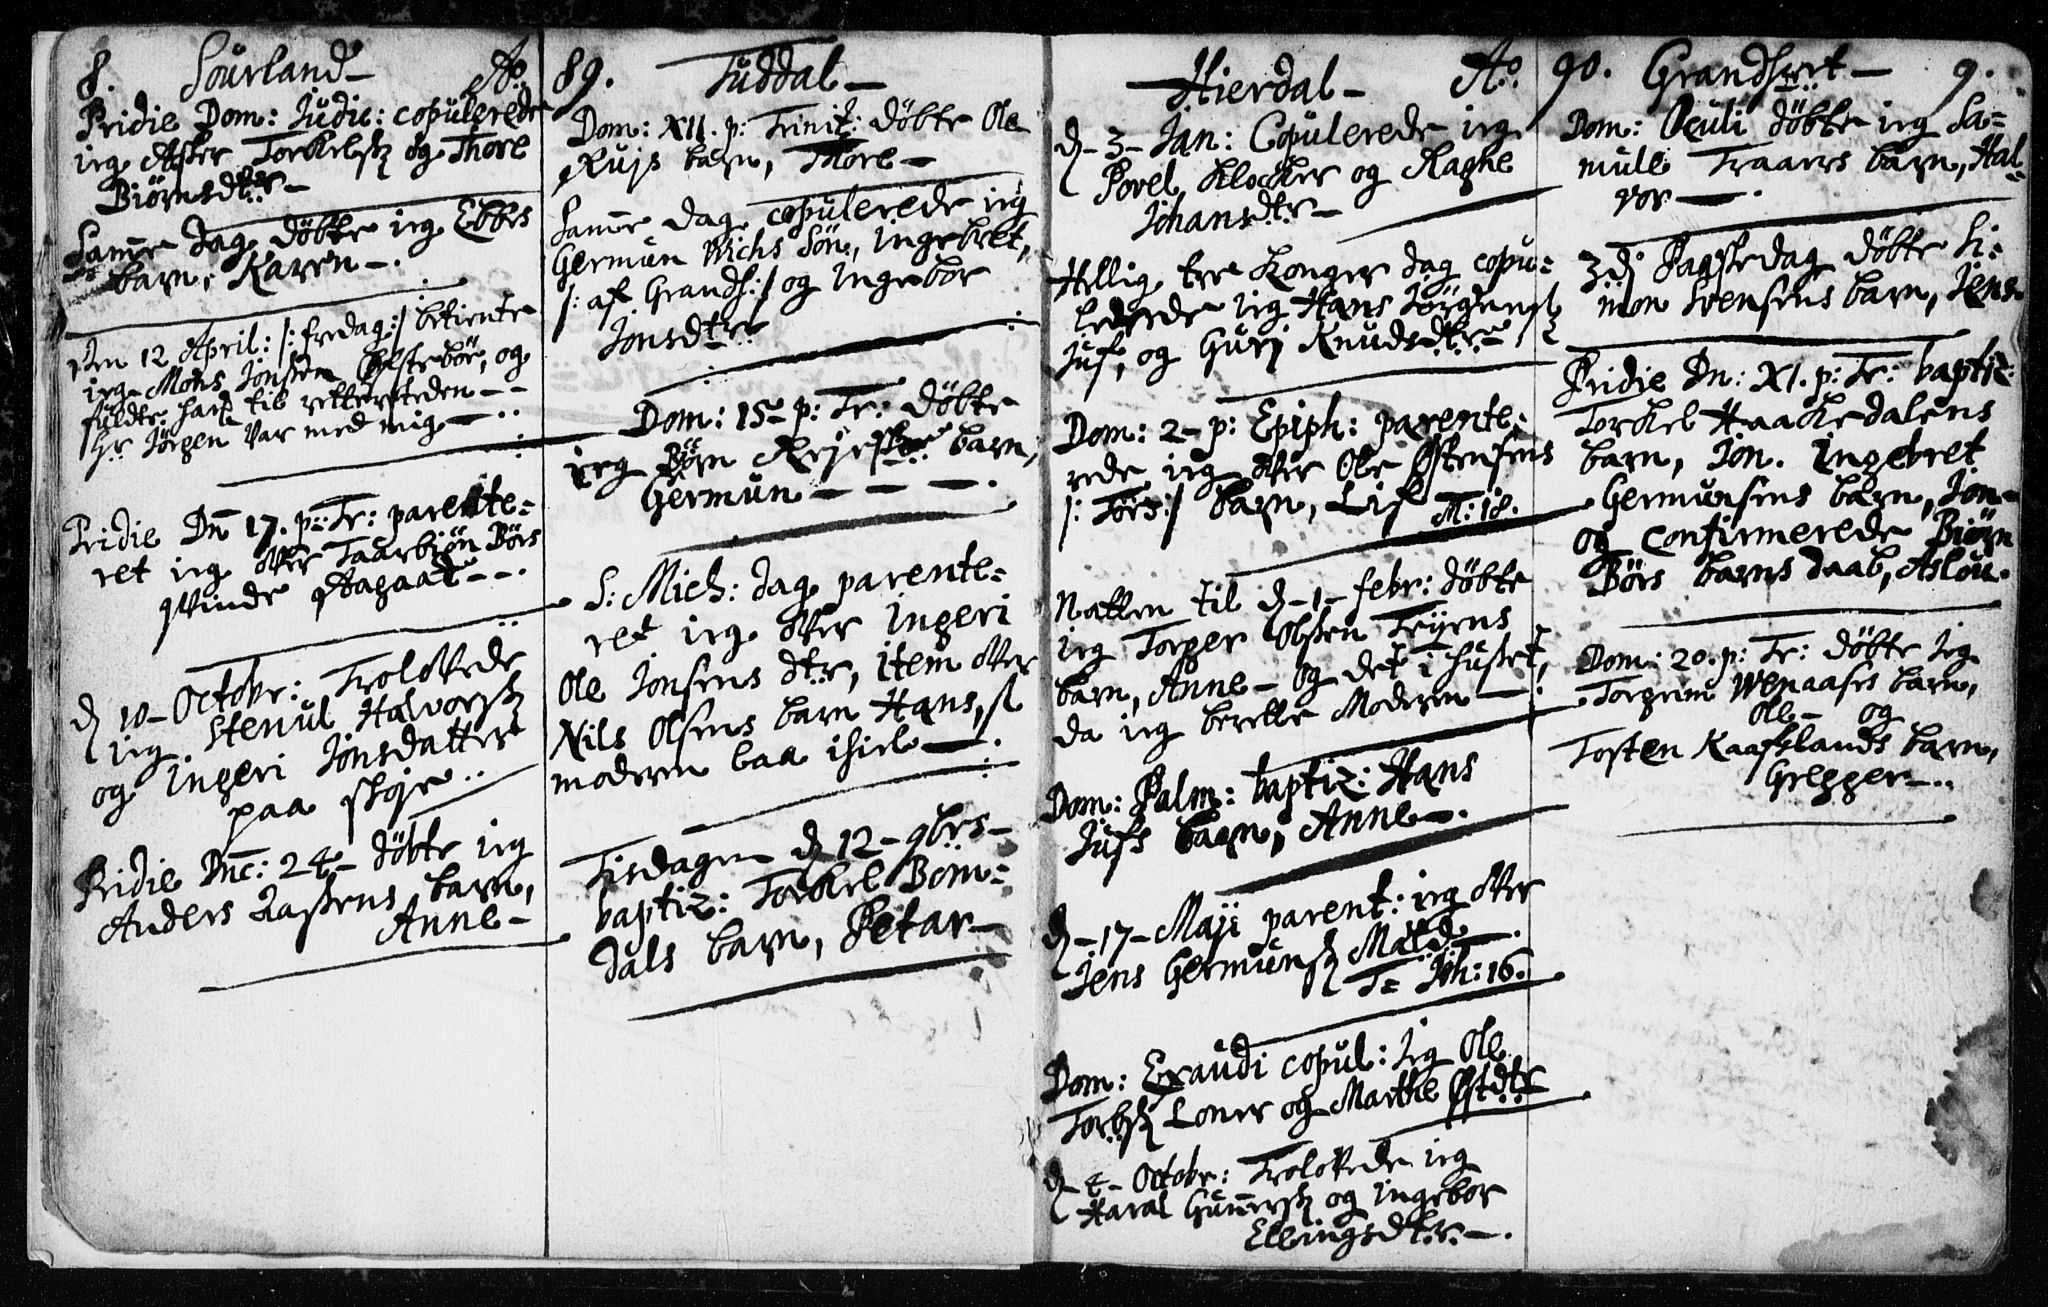 8. Sourland Ao
Pridie Dom: Judic: copulerede
ieg Asser Torkelss og Thore
Biørnsdtr
Samme dag døbte ieg Ebbes
barn, Karen
Den 12 April: /: fredag :/ betiente
ieg Mons Jonssen og
fuldte ham til rettersteden
Hr Jörgen var med mig
Pridie Dn 17. p: Tr: parente=
ret ieg over Taarbiøn Börs
qvinde Aagaat
d 10 Octobr: Trolovede
ieg Stenul Halvorss
og Ingeri Jonsdatter
paa skoje
Pridie Dnc: 24 döbte ieg
Anders Lassens barn,
Anne
89. Tuddal
Dom: XII. p: Trinit: døbte Ole
Rujs barn, Thore
Samme dag copulerede ieg
Germun Nichs Sön, Ingebret,
/: af Grands :/ og Ingebor
Jonsdtr
Dom: 15 p: Tr: döbte
ieg Börn barn,
Germun
S: Mich: dag parente=
ret ieg over Ingeri
Ole Jonsens dtr, item over
Nils Olsens barn Hans,
moderen laa ihiel
Tisdagen d 12 9brs
baptiz: Torkel Bom=
dals barn, Petar
Hierdal Ao
d 3 Jan: Copulerede ieg
Povel Klocker og Ragne
Johansdtr
Hellig tre Konger dag copu=
lerede ieg Hans Jørgenss
Juf, og Guri Knudsdtr
Dom: 2 p: Epiph: parente=
rede ieg over Ole Østensens
/: Törs :/ barn, Lif M: 18.
Natten til d 1 febr: döbte
ieg Torger Olssen Tryens
barn, Anne og det i huset,
da ieg berette Moderen
Dom: Palm: baptiz: Hans
Jufs barn, Anne
d 17 Maji parent: ieg over
Jens Germunss
T= Joh: 16.
Dom: Exaudi copul: ieg Ole
Torbss Loner og Marthe Østdtr
d 4 Octobr: Trolovede ieg
Haral Gunnerss og Ingebor
Ellingsdtr
90. Grandsret 9.
Dom: Oculi döbte ieg Sa=
mule Traaers barn, Hal=
vor
3di Paaskedag døbte Si=
mon Svensens barn, Jens
Pridie Dn: XI. p: Tr: baptiz:
Torkel Haakedalens
barn, Jon. Ingebret
Germunsens barn, Jon
og confirmerede Biørn
Börs barns daab, Aslou.
Dom: 20. p: Tr: döbte ieg
Torgrim Wenaases barn,
Ole og
Tosten Kaafslands barn,
Gregger